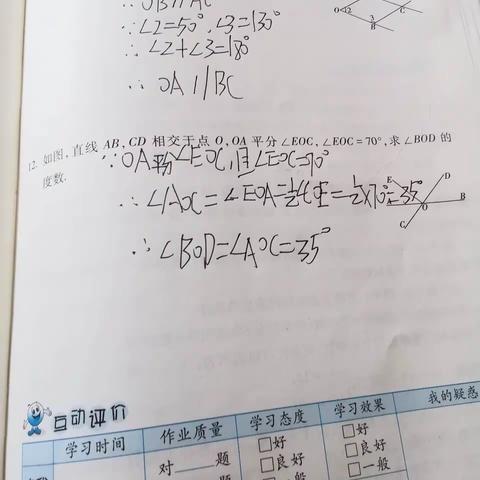 ∴ OB∥AC
∵∠2=50°,∠3=130°
∴∠2+∠3=180°
∴ OA∥BC
O 12 3 B C
12. 如图,直线 AB,CD 相交于点 O,OA 平分 ∠EOC,∠EOC=70°,求∠BOD 的
度数.
∵OA平分∠EOC,且∠EOC=70°
∴∠AOC=∠EOA=½∠COE=½×70°=35°
∴∠BOD=∠AOC=35°
E D
O B
C
互动评价
学习时间 作业质量 学习态度 学习效果 我的疑惑
对 题 □好 □好
□良好 □良好
□一般